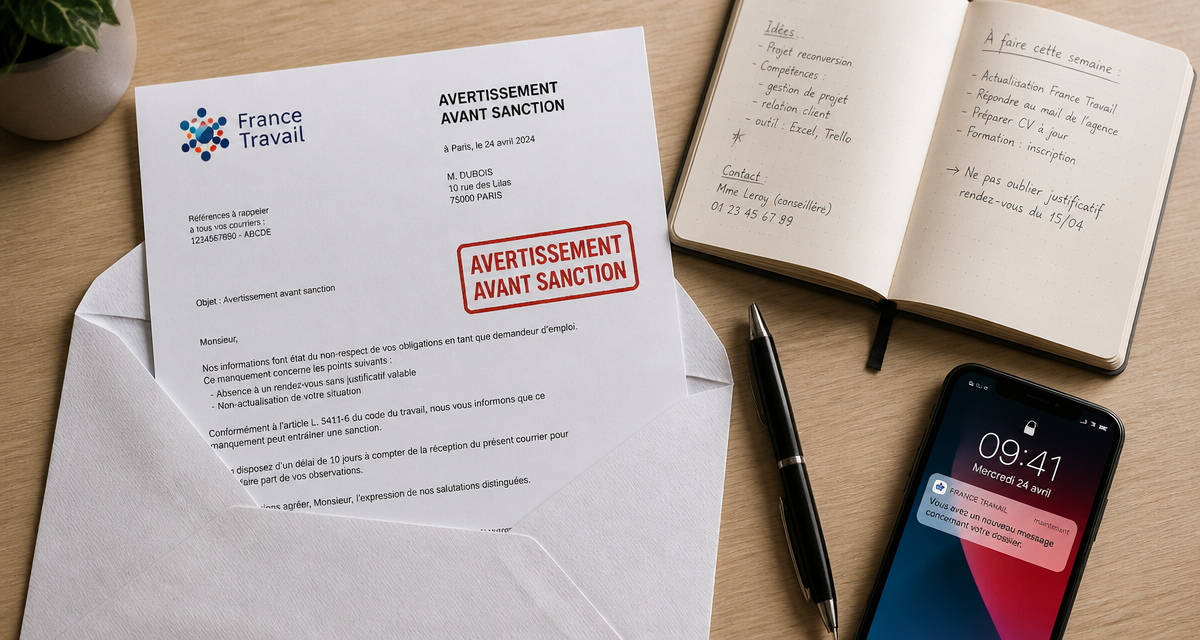 France
Travail
AVERTISSEMENT
AVANT SANCTION
à Paris, le 24 avril 2024
M. DUBOIS
10 rue des Lilas
75000 PARIS
Références à rappeler
à tous vos courriers :
1234567890 - ABCDE
AVERTISSEMENT
AVANT SANCTION
Objet : Avertissement avant sanction
Monsieur,
Nos informations font état du non-respect de vos obligations en tant que demandeur d'emploi.
Ce manquement concerne les points suivants :
- Absence à un rendez-vous sans justificatif valable
- Non-actualisation de votre situation
Conformément à l'article L. 5411-6 du code du travail, nous vous informons que ce
manquement peut entraîner une sanction.
disposez d'un délai de 10 jours à compter de la réception du présent courrier pour
faire part de vos observations.
agréer, Monsieur, l'expression de nos salutations distinguées.
Idées
- Projet reconversion
- Compétences :
- gestion de projet
- relation client
- outil : Excel, Trello
Contact :
Mme Leroy (conseilléré)
01 23 45 67 89
À faire cette semaine :
- Actualisation France Travail
- Répondre au mail de l'agence
- Préparer CV à jour
- Formation : inscription
→ Ne pas oublier justificatif
rendez-vous du 15/04
09:41
Mercredi 24 avril
FRANCE TRAVAIL
maintenant
Vous avez un nouveau message
concernant votre dossier.